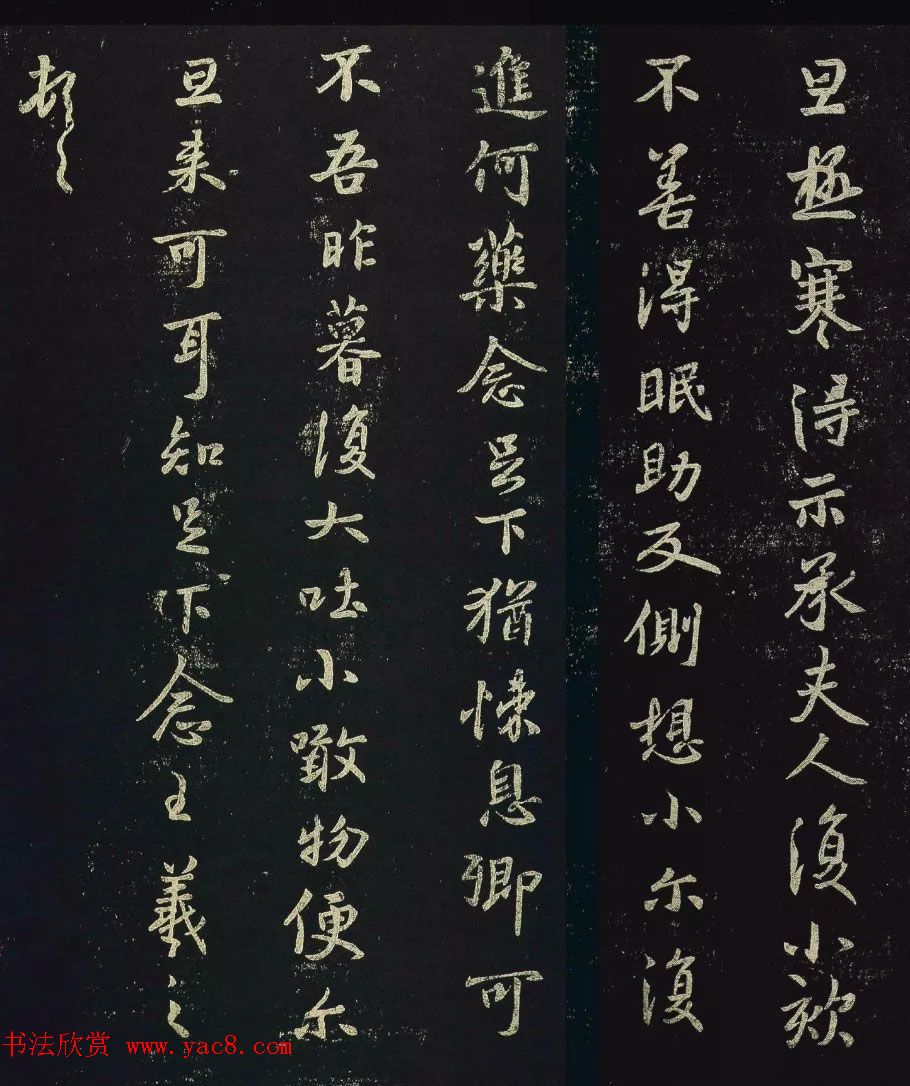 旦極寒得示承夫人復小欬
不善得眠助反側想小尔復
進何藥念足下猶悚息卿可
不吾昨暮復大吐小噉物便尔
旦来可耳知足下念王羲之
頓〻
书法欣赏 www.yac8.com